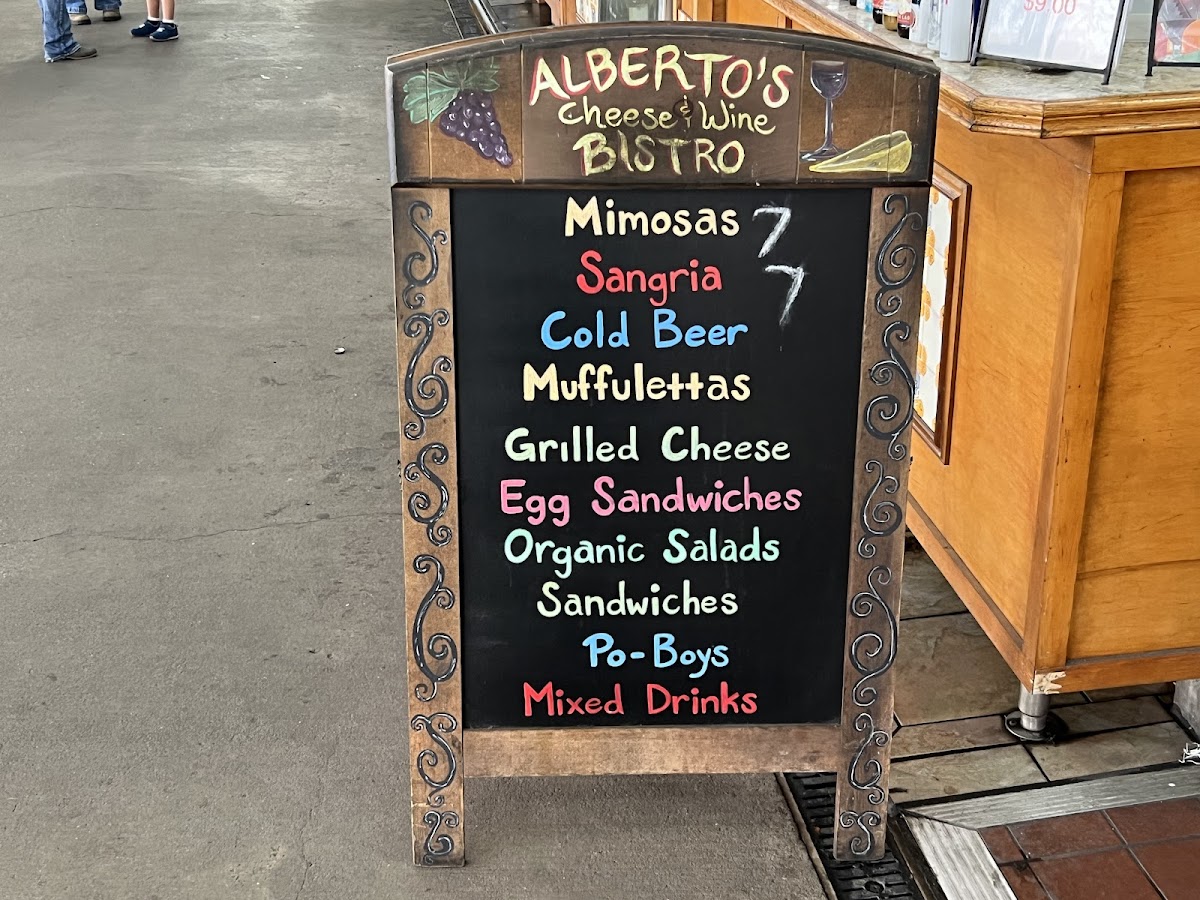 $9.00
ALBERTO'S
Cheese & Wine
BISTRO
Mimosas 7
Sangria 7
Cold Beer
Muffulettas
Grilled Cheese
Egg Sandwiches
Organic Salads
Sandwiches
Po-Boys
Mixed Drinks